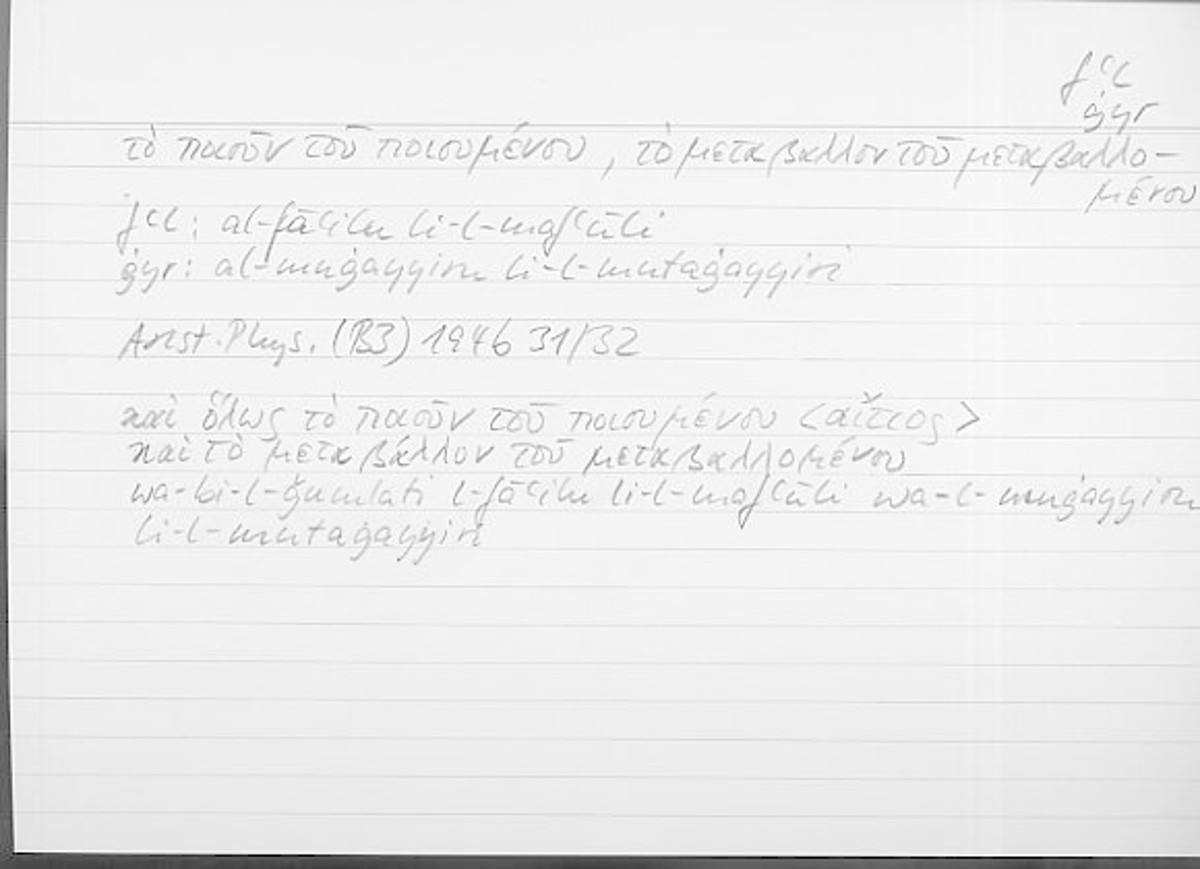 fʿl
ġyr
τὸ ποιοῦν τοῦ ποιουμένου, τὸ μεταβαλλον τοῦ μεταβαλλο-
μένου
fʿl: al-fāʿilu li-l-mafʿūli
ġyr: al-muġayyiru li-l-mutaġayyiri
Arist. Phys. (B3) 194b 31/32
καὶ ὅλως τὸ ποιοῦν τοῦ ποιουμένου <αἴτιος>
καὶ τὸ μεταβάλλον τοῦ μεταβαλλομένου
wa-bi-l-ǧumlati l-fāʿilu li-l-mafʿūli wa-l-muġayyiru
li-l-mutaġayyiri